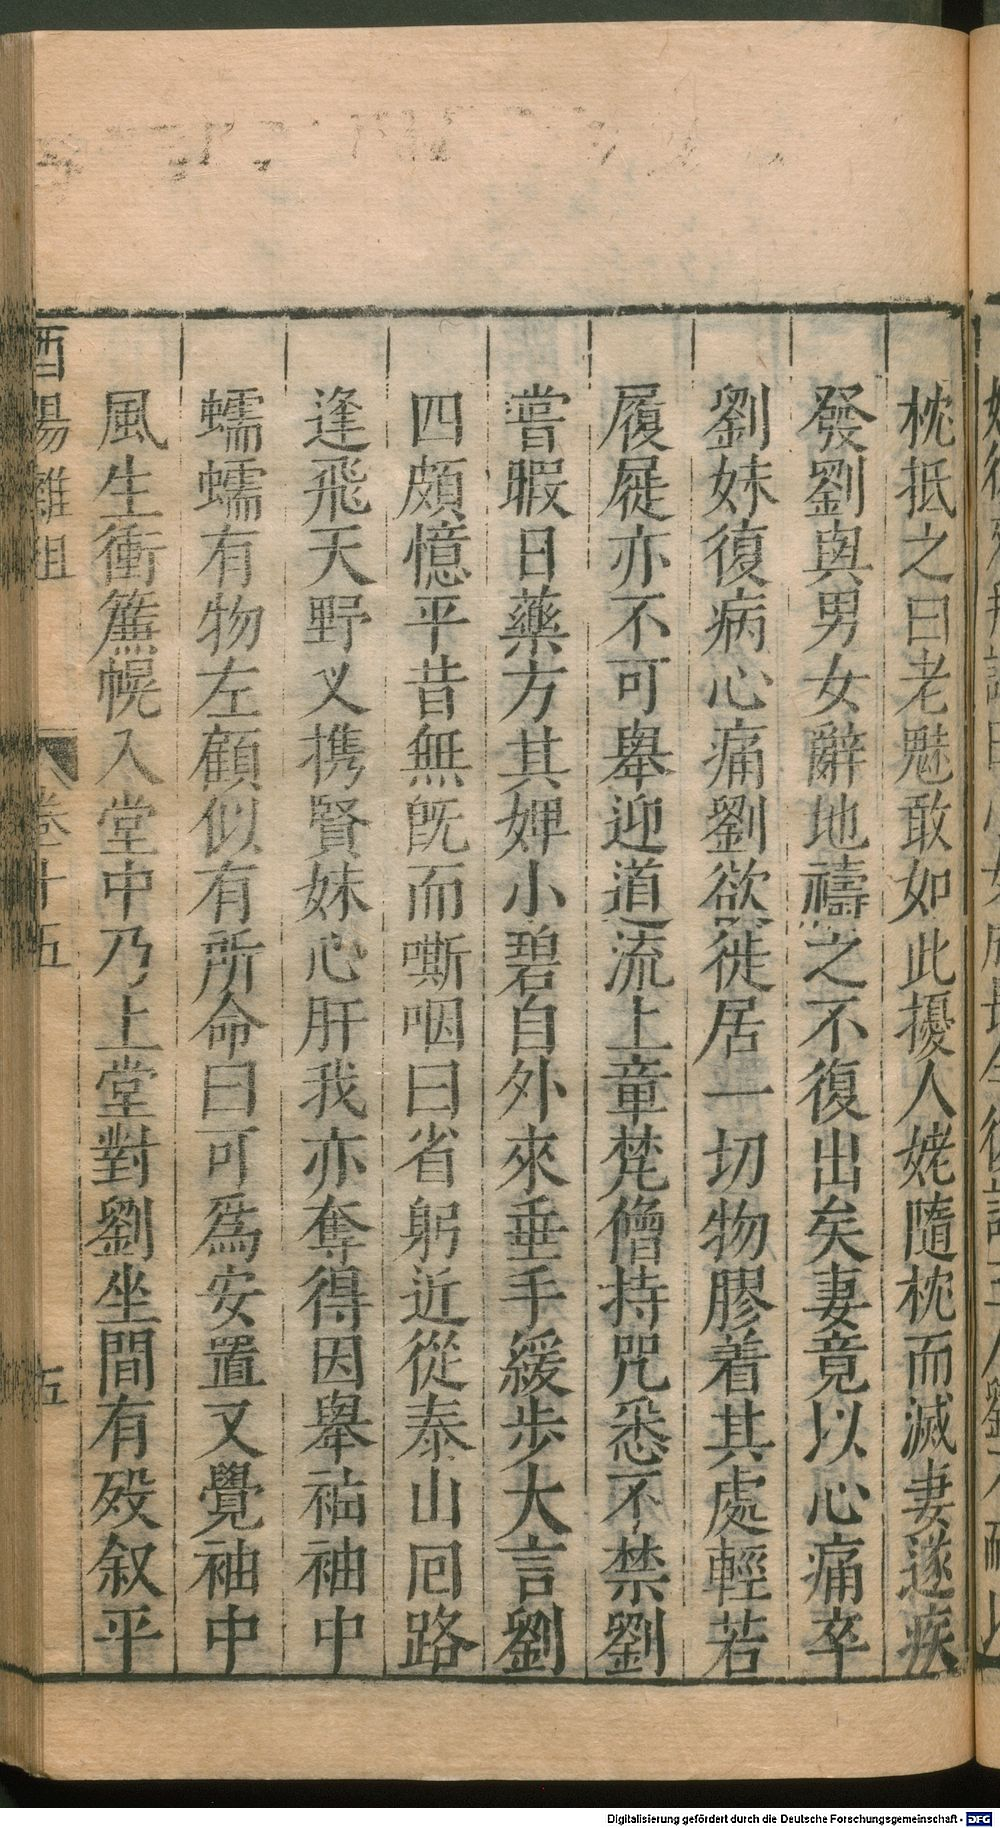 枕抵之曰老魅敢如此擾人姥隨枕而滅妻遂疾
發劉與男女辭地禱之不復出矣妻竟以心痛卒
劉妹復病心痛劉欲徙居一切物膠着其處輕若
履屣亦不可舉迎道流上章梵僧持咒悉不禁劉
嘗暇日藥方其婢小碧自外來垂手緩步大言劉
四頗憶平昔無旣而嘶咽曰省躬近從泰山囘路
逢飛天野叉携賢妹心肝我亦奪得因舉袖袖中
蠕蠕有物左顧似有所命曰可爲安置又覺袖中
風生衝簾幌入堂中乃上堂對劉坐間有歿叙平
酉陽雜俎
卷十五
五
Digitalisierung gefördert durch die Deutsche Forschungsgemeinschaft - DFG